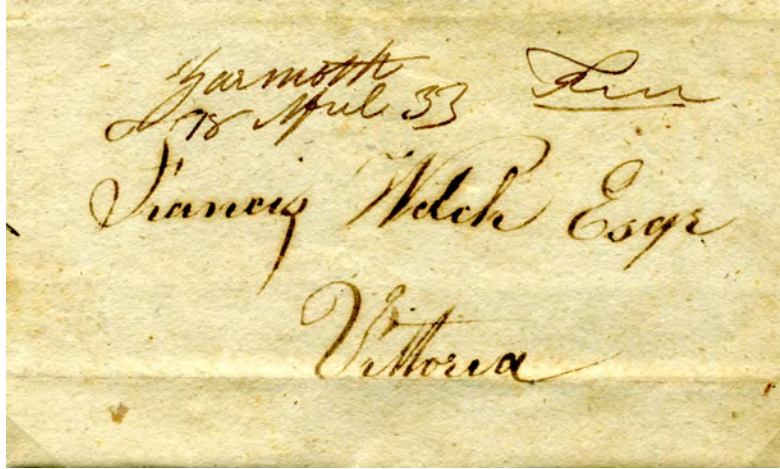 Yarmoth Free
18 April 33
Francis Welch Esqr
Vittoria